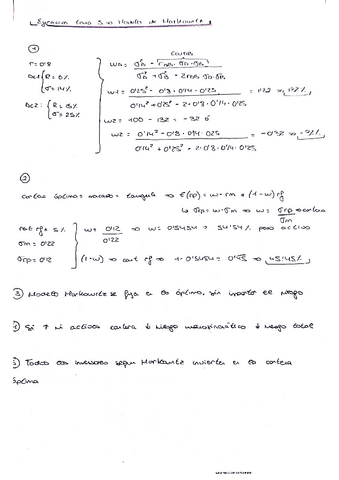 Ejercicios Tema 5 Modelo de Markowitz
①
r=0'8
Ac1 { R = 6%
σ = 14%
Ac2: { R = 15%
σ = 25%
w1 = 0'25² - 0'8 · 0'14 · 0'25
0'14² + 0'25² - 2 · 0'8 · 0'14 · 0'25
w2 = 100 - 132 = -32 %
w2 = 0'14² - 0'8 · 0'14 · 0'25
0'14² + 0'25² - 2 · 0'8 · 0'14 · 0'25
②
cartera óptima = mercado = tangente → E(rp) = w · rm + (1-w) rf
↳ σrp = w · σm → w = σrp
σm
rent rf = 5%
σm = 0'22
σrp = 0'12
w = 0'12
0'22
w = 0'5454 → 54'54% peso activo
(1-w) → rf → 1 - 0'5454 = → 45'45%
③ Modelo Markowitz se fija en lo óptimo, sin importar el riesgo
④ Si ↑ Nº activos cartera ↓ riesgo ↓ riesgo total
⑤ Todos los inversores según Markowitz invierten en la cartera
óptima